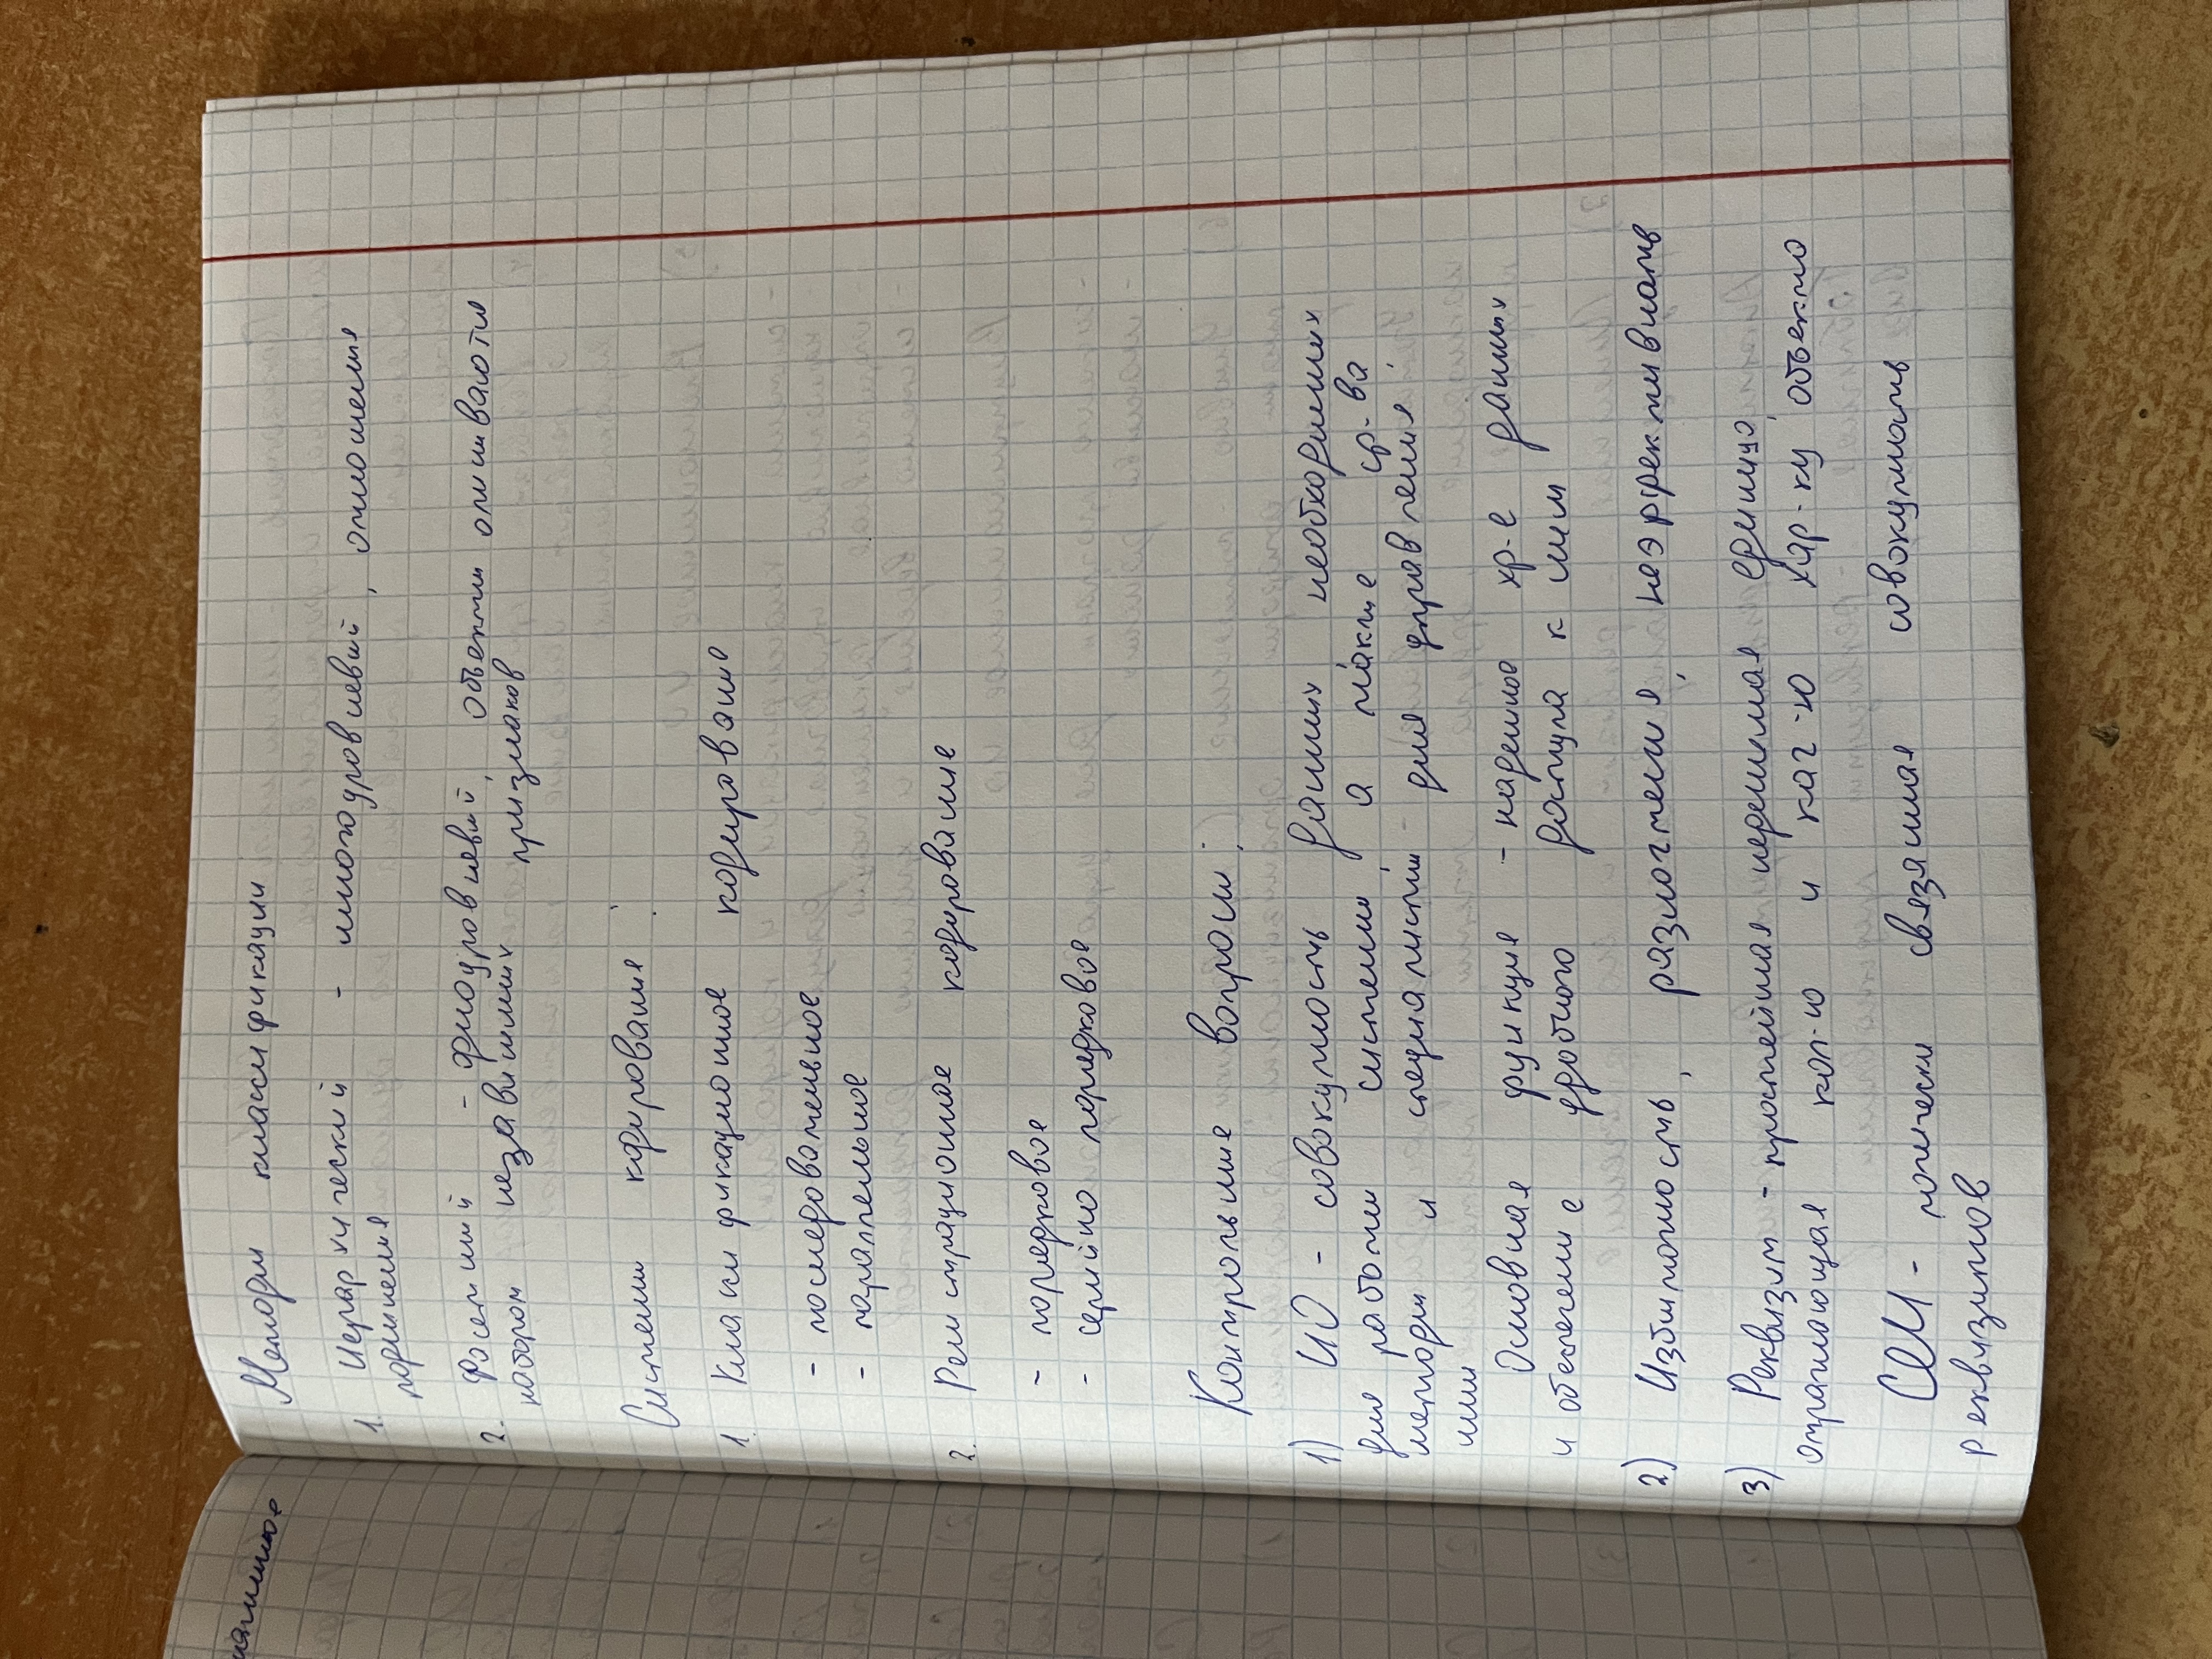 Методы классификации
1. Иерархический - многоуровневый, отношения
подчинения
2. Фасетный - одноуровневый, объекты описываются
набором независимых признаков
Системы кодирования
1. Классификационное кодирование
- последовательное
- параллельное
2. Регистрационное кодирование
- порядковое
- серийно порядковое
Контрольные вопросы:
1) ИО - совокупность данных необходимых
для работы системы, а также ср-ва
методы и специалисты для управления
ими
Основная функция - надежное хр-е данных
и обеспечение удобного доступа к ним
2) Избыточность, разногласия, неэффективность
3) Реквизит - простейшая неделимая единица,
отражающая кол-ю и кач-ю хар-ку объекта
СЕИ - логически связанная совокупность
реквизитов